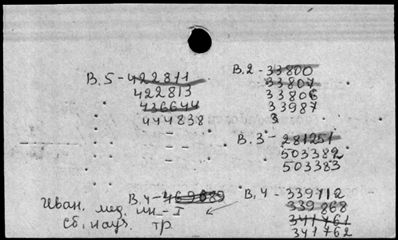 В.5 - 422811
422813
436644
444838
В.2 - 33800
33807
33806
33987
3
В.3 - 281251
503382
503383
В.4 - 469689
В.4 - 339112
339868
341761
341762
Иван. мед. ин-т
Сб. науч. тр.